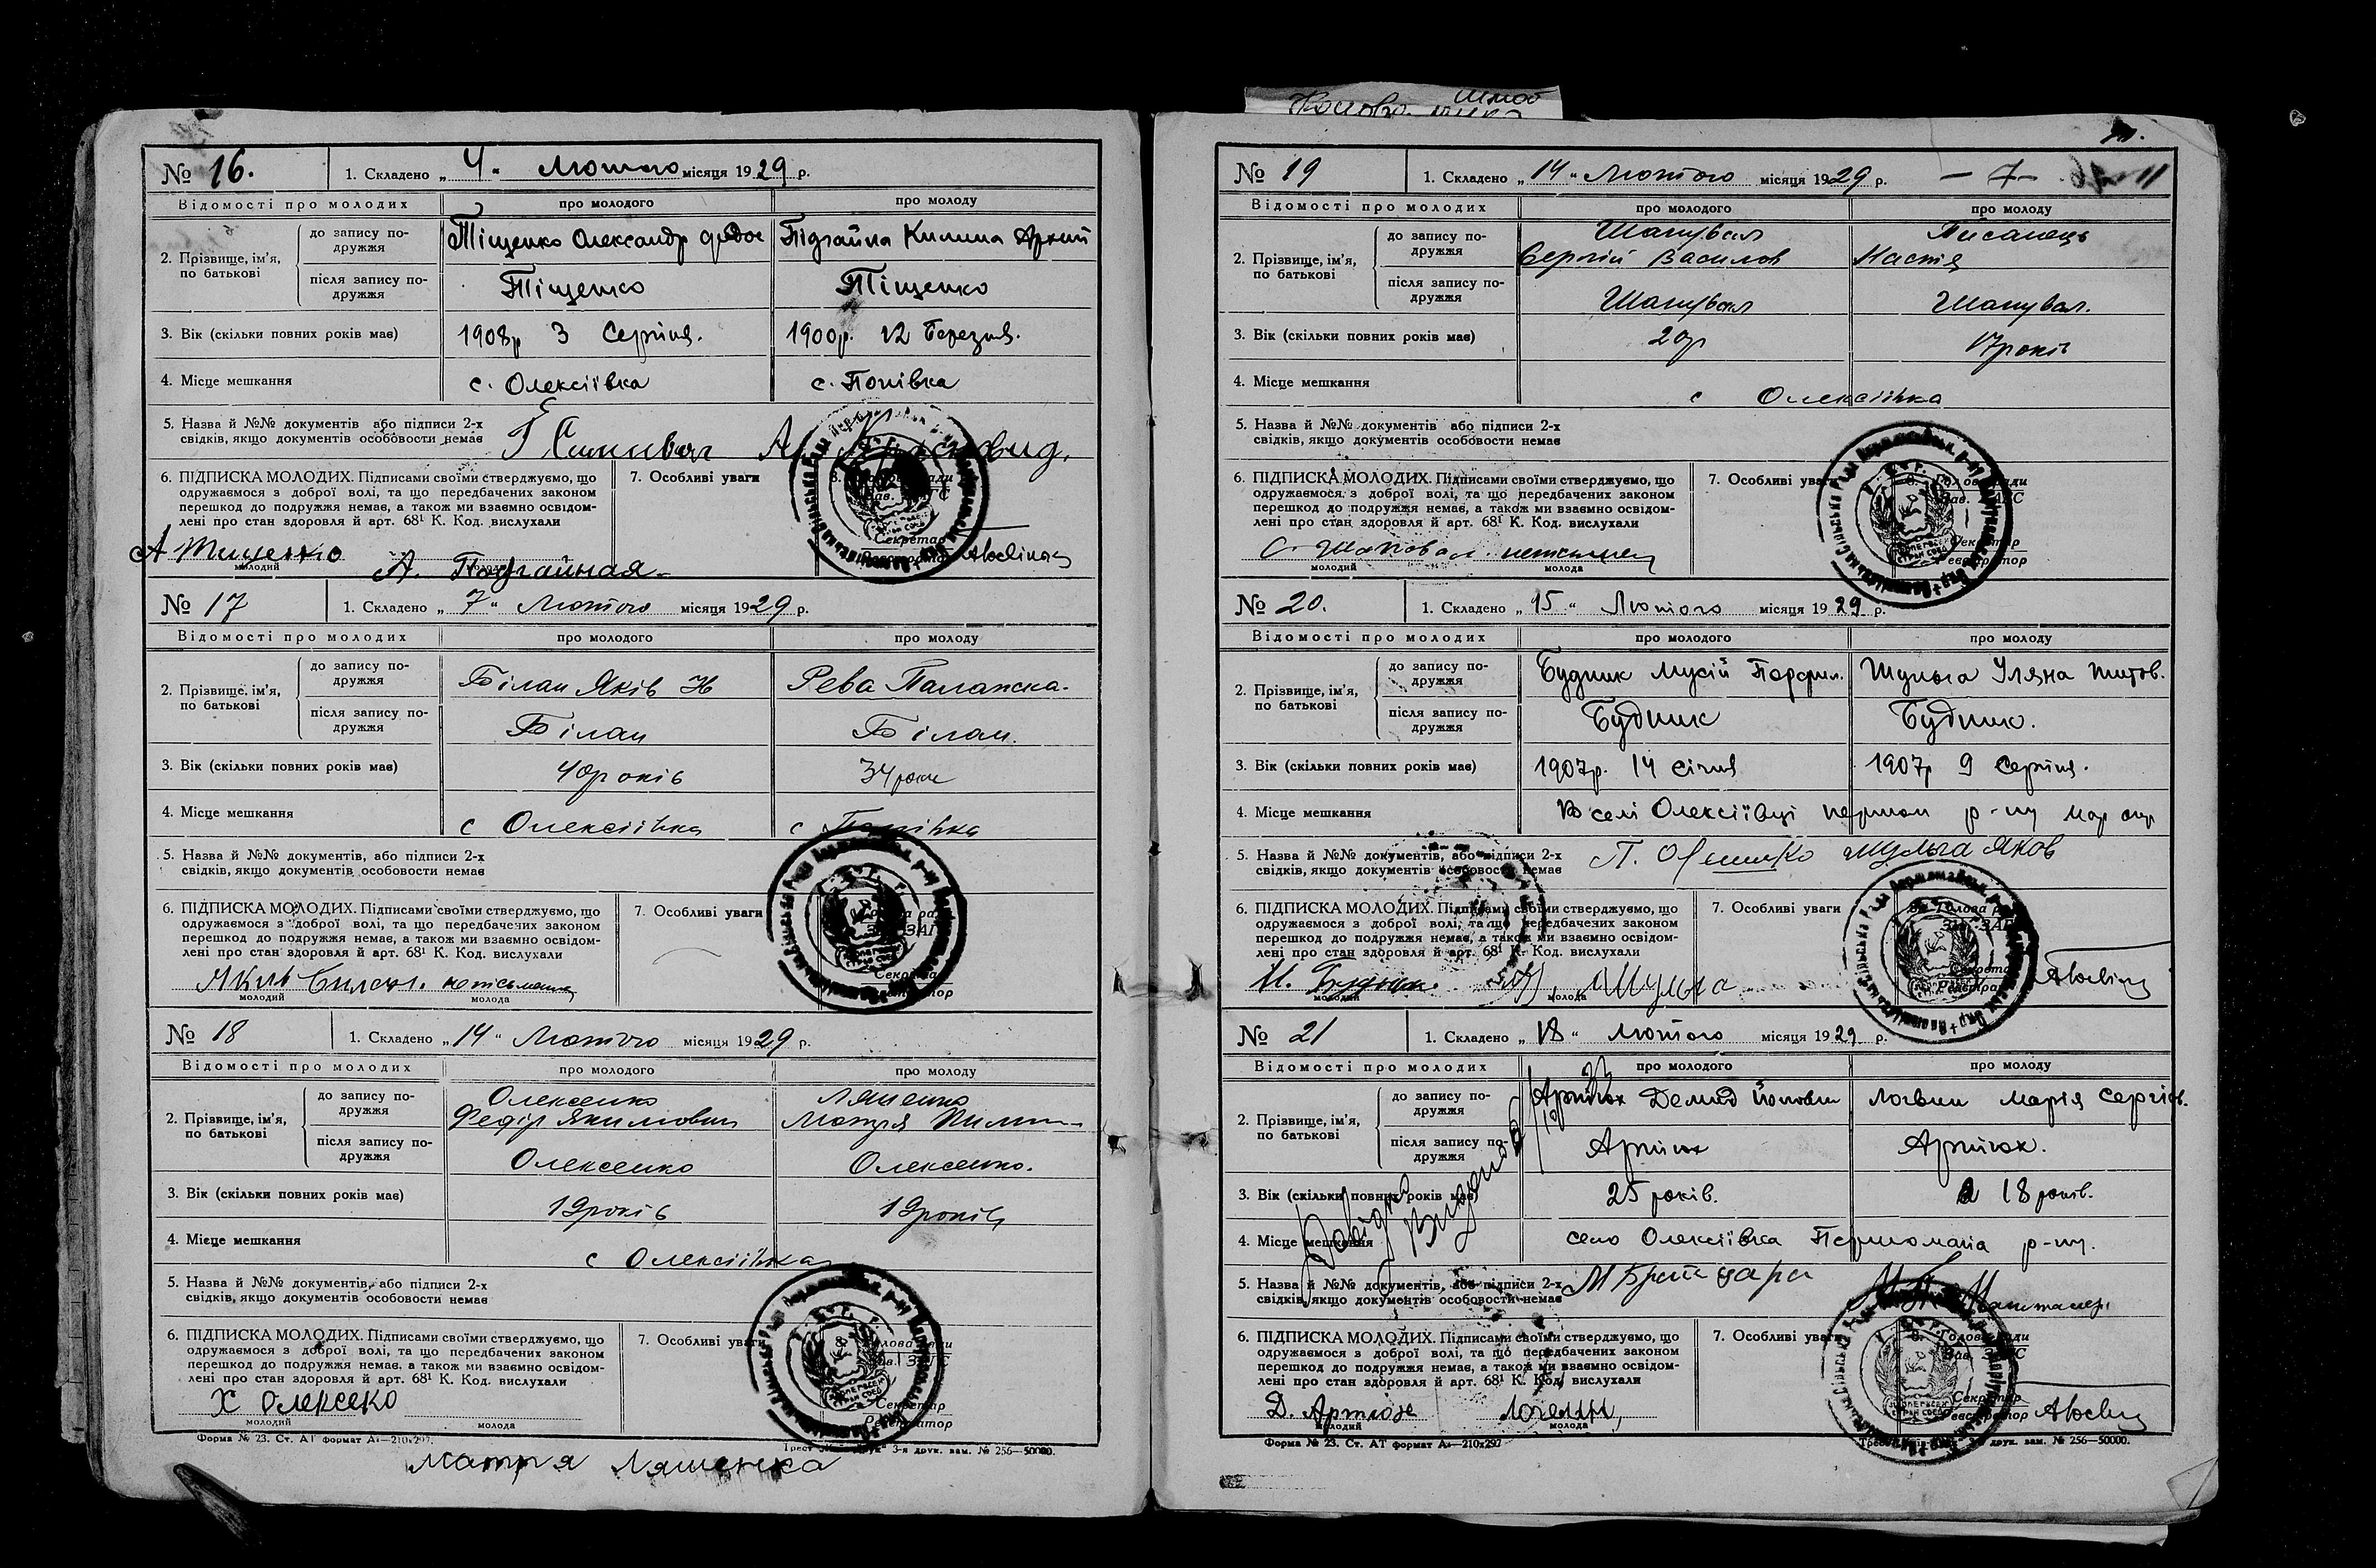 № 16. 1. Складено „ 4 " Лютого місяця 1929 р.
Відомості про молодих про молодого про молоду
2. Прізвище, ім'я, по батькові
до запису по-дружжя Тіщенко Олександр Федос Підгайна Килина Архип
після запису по-дружжя Тіщенко Тіщенко
3. Вік (скільки повних років має) 1908р 3 Серпня. 1900р. 12 Березня.
4. Місце мешкання с. Олексіївка с. Попівка
5. Назва й №№ документів або підписи 2-х
свідків, якщо документів особовости немає
6. ПІДПИСКА МОЛОДИХ. Підписами своїми стверджуємо, що
одружаємося з доброї волі, та що передбачених законом
перешкод до подружжя немає, а також ми взаємно освідом-
лені про стан здоровля й арт. 68¹ К. Код. вислухали
7. Особливі уваги
Секретар
А Тищенко А. Подгайная
молодий
№ 17 1. Складено „ 7 " Лютого місяця 1929 р.
Відомості про молодих про молодого про молоду
2. Прізвище, ім'я, по батькові
до запису по-дружжя Білан Яків Н Рева Палажка.
після запису по-дружжя Білан Білан.
3. Вік (скільки повних років має) 40років 34роки
4. Місце мешкання с Олексіївка с Попівка
5. Назва й №№ документів, або підписи 2-х
свідків, якщо документів особовости немає
6. ПІДПИСКА МОЛОДИХ. Підписами своїми стверджуємо, що
одружаємося з доброї волі, та що передбачених законом
перешкод до подружжя немає, а також ми взаємно освідом-
лені про стан здоровля й арт. 68¹ К. Код. вислухали
7. Особливі уваги
Билан. неписьменна
молодий молода
№ 18 1. Складено „ 14 " Лютого місяця 1929 р.
Відомості про молодих про молодого про молоду
2. Прізвище, ім'я, по батькові
до запису по-дружжя Олексенко Федір Якимович Ляшенко Мотря
після запису по-дружжя Олексенко Олексенко.
3. Вік (скільки повних років має) 19років 19років
4. Місце мешкання с Олексіївка
5. Назва й №№ документів, або підписи 2-х
свідків, якщо документів особовости немає
6. ПІДПИСКА МОЛОДИХ. Підписами своїми стверджуємо, що
одружаємося з доброї волі, та що передбачених законом
перешкод до подружжя немає, а також ми взаємно освідом-
лені про стан здоровля й арт. 68¹ К. Код. вислухали
7. Особливі уваги
Секретар
Х Олексеко
молодий молода
Форма № 23. Ст. АТ формат А₄—210х297. 3-я друк. зам. № 256—50000.
Мотря Ляшенка
№ 19 1. Складено „ 14 " Лютого місяця 1929 р. - 7 - 11
Відомості про молодих про молодого про молоду
2. Прізвище, ім'я, по батькові
до запису по-дружжя Шапувал Сергій Василов Писанець Настя
після запису по-дружжя Шапувал Шапувал.
3. Вік (скільки повних років має) 20р 17років
4. Місце мешкання с Олексіївка
5. Назва й №№ документів або підписи 2-х
свідків, якщо документів особовости немає
6. ПІДПИСКА МОЛОДИХ. Підписами своїми стверджуємо, що
одружаємося з доброї волі, та що передбачених законом
перешкод до подружжя немає, а також ми взаємно освідом-
лені про стан здоровля й арт. 68¹ К. Код. вислухали
7. Особливі уваги
С. Шаповал.
молодий молода
№ 20. 1. Складено „ 15 " Лютого місяця 1929 р.
Відомості про молодих про молодого про молоду
2. Прізвище, ім'я, по батькові
до запису по-дружжя Будник Мусій Порфил. Шульга Уляна Титов.
після запису по-дружжя Будник Будник.
3. Вік (скільки повних років має) 1907р. 14 січня 1907р 9 Серпня.
4. Місце мешкання В селі Олексіївці першом р-ну мар окр
5. Назва й №№ документів, або підписи 2-х Шульга Яков
свідків, якщо документів особовости немає
6. ПІДПИСКА МОЛОДИХ. Підписами своїми стверджуємо, що
одружаємося з доброї волі, та що передбачених законом
перешкод до подружжя немає, а також ми взаємно освідом-
лені про стан здоровля й арт. 68¹ К. Код. вислухали
7. Особливі уваги
Шульга
молодий молода
№ 21 1. Складено „ 18 " Лютого місяця 1929 р.
Відомості про молодих про молодого про молоду
2. Прізвище, ім'я, по батькові
до запису по-дружжя Артюх Демид Логвин Марія Сергіев.
після запису по-дружжя Артюх Артюх.
3. Вік (скільки повних років має) 25 років. 18 років.
4. Місце мешкання село Олексіївка Першомай р-ну.
Довідка Видана
5. Назва й №№ документів, або підписи 2-х
свідків, якщо документів особовости немає
6. ПІДПИСКА МОЛОДИХ. Підписами своїми стверджуємо, що
одружаємося з доброї волі, та що передбачених законом
перешкод до подружжя немає, а також ми взаємно освідом-
лені про стан здоровля й арт. 68¹ К. Код. вислухали
7. Особливі уваги
Секретар
Д. Артюх
молодий молода
Форма № 23. Ст. АТ формат А₄—210х297 друк. зам. № 256—50000.